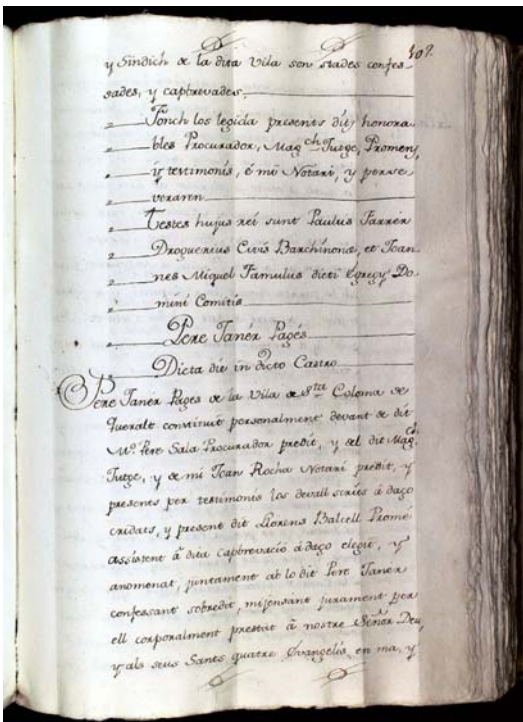 407.
y Sindich de la dita Vila son stades confes-
sades, y capbrevades.
Fonch los legida presents dits honora-
bles Procurador, Mag.ch Jutge, Promens,
y testimonis, é mi Notari, y perse-
veraren
Testes hujus rei sunt Paulus Farrér
Droguerius Civis Barchinonæ, et Joan-
nes Miquel Famulus dicti Egregy Do-
mini Comitis
Pere Tanér Pagés
Dicta die in dicto Castro
Pere Tanér Pages de la Vila de S.ta Coloma de
Queralt constituit personalment devant de dit
M.o Pere Sala Procurador predit, y del dit Mag.ch
Jutge, y de mi Joan Rocha Notari predit, y
presents per testimonis los devall scrits á daço
cridats, y present dit Llorens Balcell Promé
assistent á dita capbrevació á daço elegit, y
anomenat, juntament ab lo dit Pere Taner
confessant sobredit, mijensant jurament per
ell corporalment prestat á nostre Señor Deu,
y als seus Sants quatre Evangelis, en ma, y